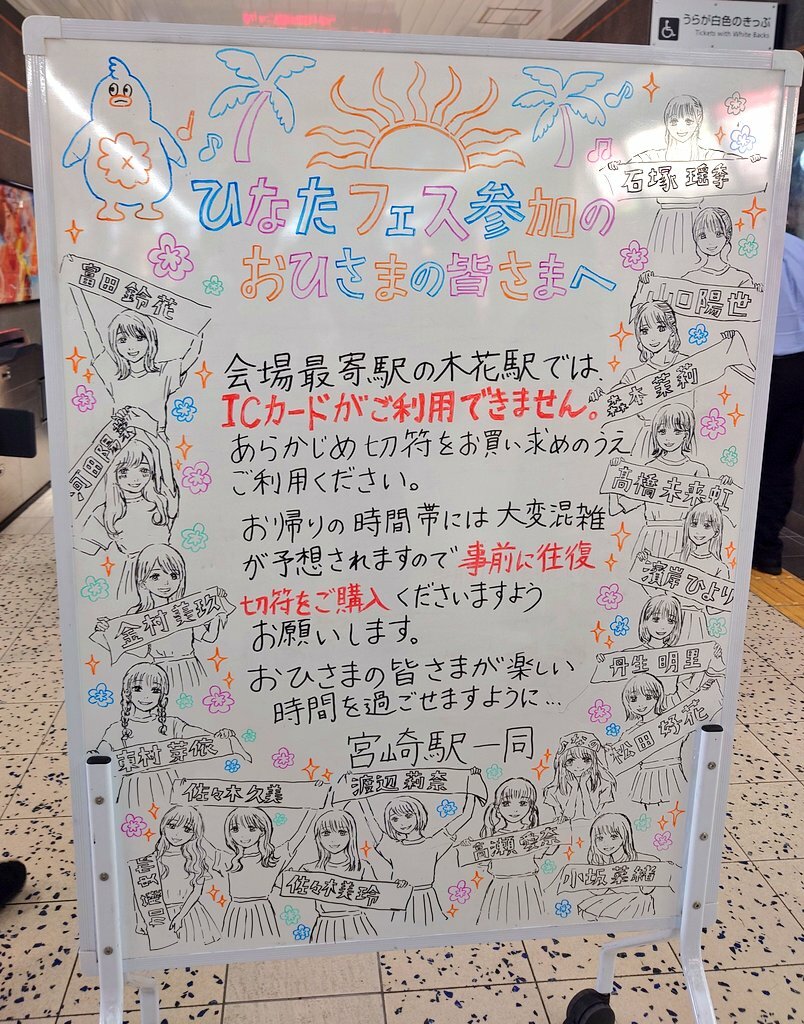 うらが白色のきっぷ
Tickets with White Backs
ひなたフェス参加の
おひさまの皆さまへ
会場最寄駅の木花駅では
ICカードがご利用できません。
あらかじめ切符をお買い求めのうえ
ご利用ください。
お帰りの時間帯には大変混雑
が予想されますので事前に往復
切符をご購入くださいますよう
お願いします。
おひさまの皆さまが楽しい
時間を過ごせますように…
宮崎駅一同
富田鈴花
河田陽菜
金村美玖
東村芽依
佐々木久美
佐々木美玲
渡辺莉奈
髙瀬愛奈
小坂菜緒
松田好花
丹生明里
濱岸ひより
髙橋未来虹
森本茉莉
山口陽世
石塚瑶季